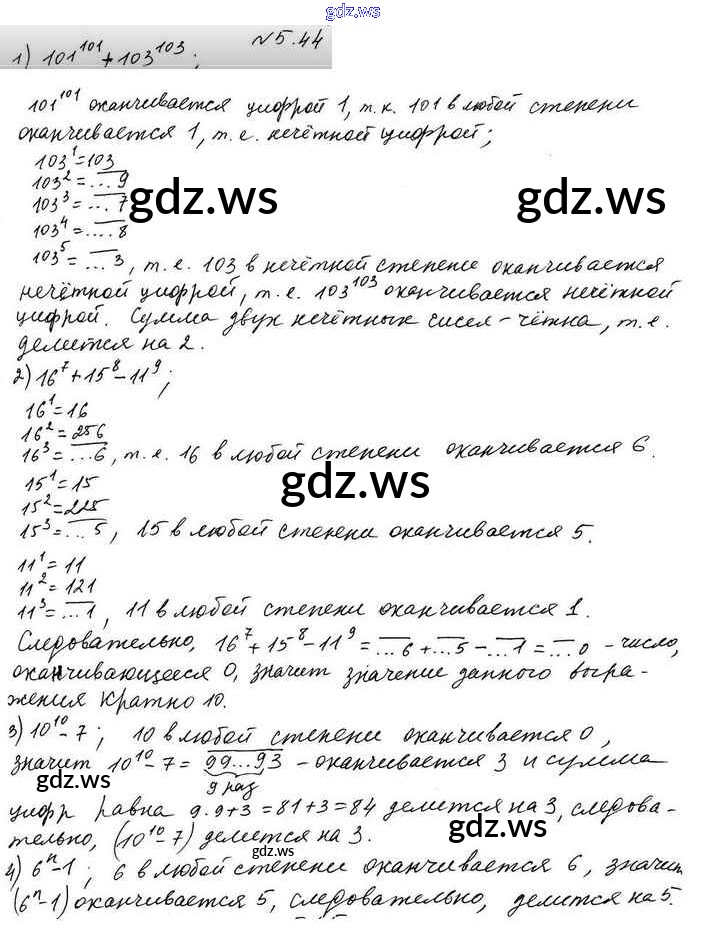 gdz.ws
№5.44
1) 101^101 + 103^103;
101^101 оканчивается цифрой 1, т.к. 101 в любой степени
оканчивается 1, т.е. нечётной цифрой;
103^1 = 103
103^2 = ...9
gdz.ws gdz.ws
103^3 = ...7
103^4 = ...8
103^5 = ...3, т.е. 103 в нечётной степени оканчивается
нечётной цифрой, т.е. 103^103 оканчивается нечётной
цифрой. Сумма двух нечётных чисел - чётна, т.е.
делится на 2.
2) 16^7 + 15^8 - 11^9;
16^1 = 16
16^2 = 256
16^3 = ...6, т.е. 16 в любой степени оканчивается 6.
15^1 = 15
gdz.ws
15^2 = 225
15^3 = ...5, 15 в любой степени оканчивается 5.
11^1 = 11
11^2 = 121
11^3 = ...1, 11 в любой степени оканчивается 1.
Следовательно, 16^7 + 15^8 - 11^9 = ...6 + ...5 - ...1 = ...0 - число,
оканчивающееся 0, значит значение данного выра-
жения кратно 10.
3) 10^10 - 7; 10 в любой степени оканчивается 0,
значит 10^10 - 7 = 99...93 - оканчивается 3 и сумма
gdz.ws
9 раз
цифр равна 9·9+3 = 81+3 = 84 делится на 3, следова-
gdz.ws
тельно, (10^10 - 7) делится на 3.
gdz.ws
4) 6^n - 1; 6 в любой степени оканчивается 6, значит
(6^n - 1) оканчивается 5, следовательно, делится на 5.
gdz.ws